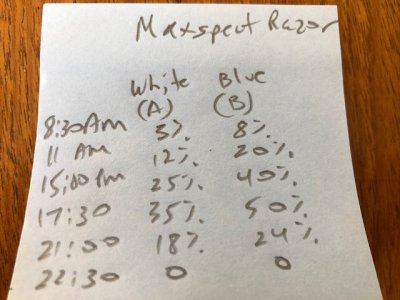 Maxspect Razor
White Blue
(A) (B)
8:30Am 5%. 8%.
11 Am 12%. 20%.
15:00 Pm 25%. 40%.
17:30 35%. 50%.
21:00 18%. 24%.
22:30 0 0